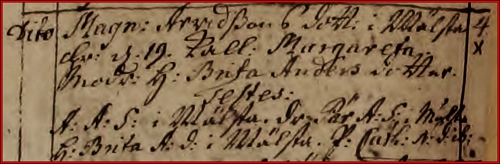 Dito Magn: Arvidßons dott: i Mälsta 4
chr: d. 19. Kall. Margareta. X
Modr: H: Brita Anders dotter.
Testes:
A: A: S: i Mälsta. Dr: Pär A: S: i Mälsta
H: Brita A: d: i Mälsta. P: Cath: A: d: ib: